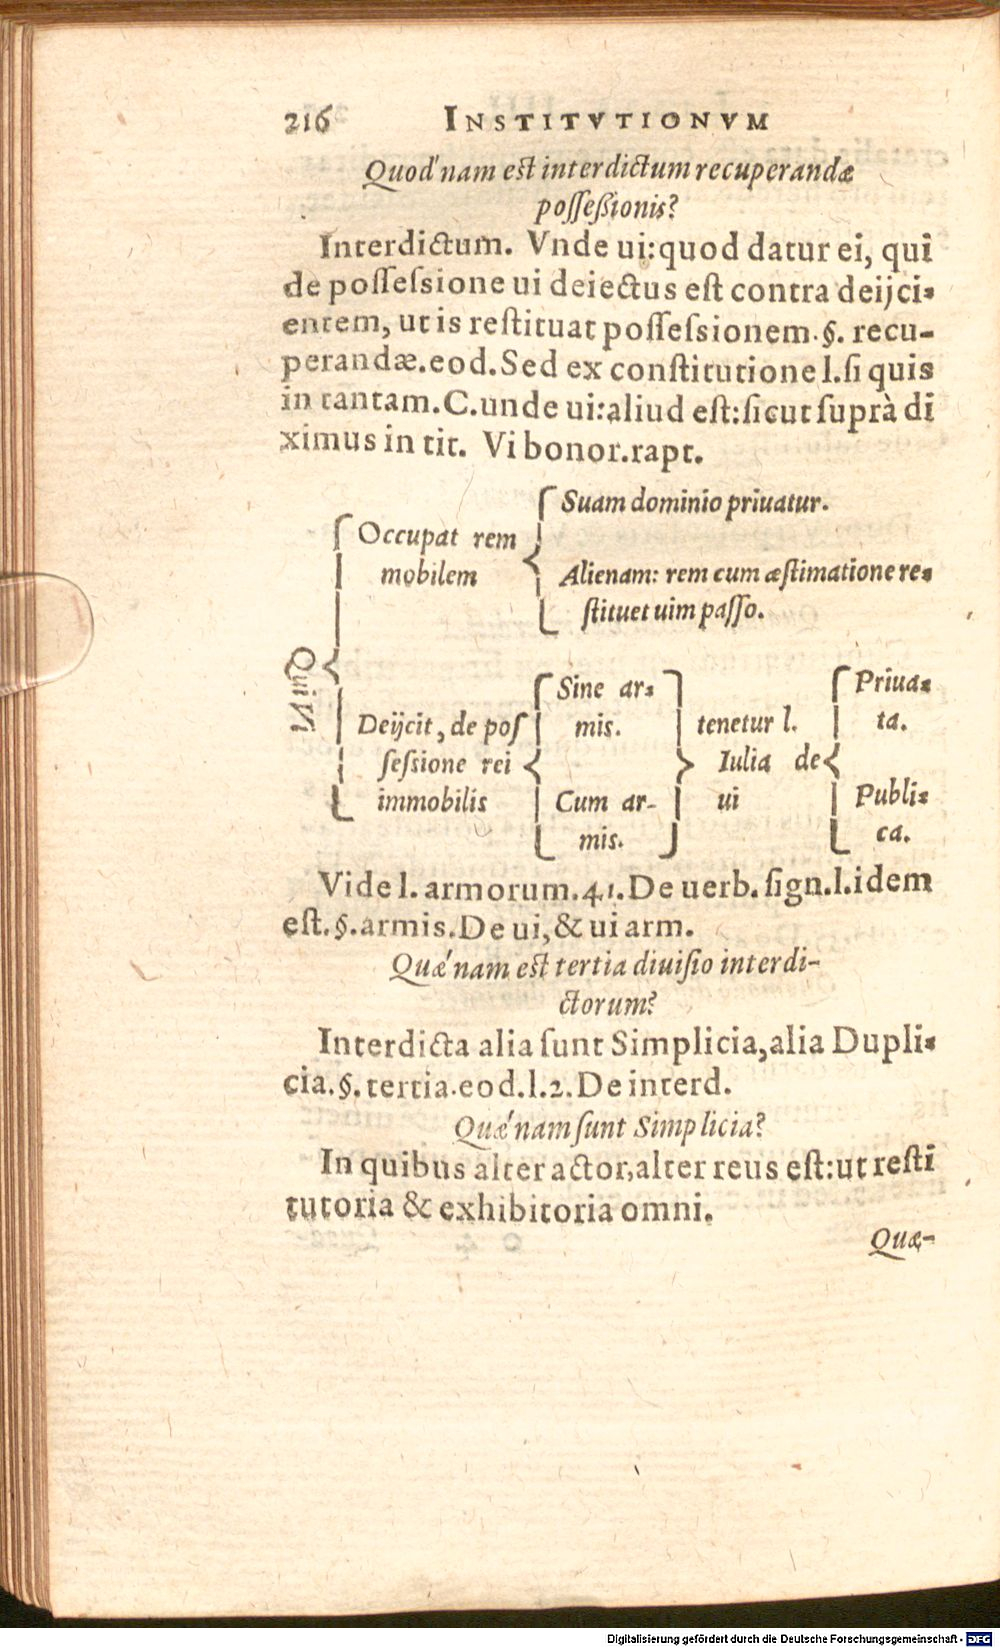 216 INSTITVTIONVM
Quod'nam est interdictum recuperandæ
possessionis?
Interdictum. Vnde ui:quod datur ei, qui
de possessione ui deiectus est contra deijci-
entem, ut is restituat possessionem.§. recu-
perandæ.eod.Sed ex constitutione l.si quis
in tantam.C.unde ui:aliud est:sicut suprà di
ximus in tit. Vi bonor.rapt.
Qui Vi
Occupat rem
mobilem
Suam dominio priuatur.
Alienam: rem cum æstimatione re-
stituet uim passo.
Deijcit, de pos
sessione rei
immobilis
Sine ar-
mis.
Cum ar-
mis.
tenetur l.
Iulia de
ui
Priua-
ta.
Publi-
ca.
Vide l. armorum.41.De uerb.sign.l.idem
est.§.armis.De ui,& ui arm.
Quæ'nam est tertia diuisio interdi-
ctorum?
Interdicta alia sunt Simplicia,alia Dupli-
cia.§.tertia.eod.l.2.De interd.
Quæ'nam sunt Simplicia?
In quibus alter actor,alter reus est:ut resti
tutoria & exhibitoria omni.
Quæ-
Digitalisierung gefördert durch die Deutsche Forschungsgemeinschaft - DFG